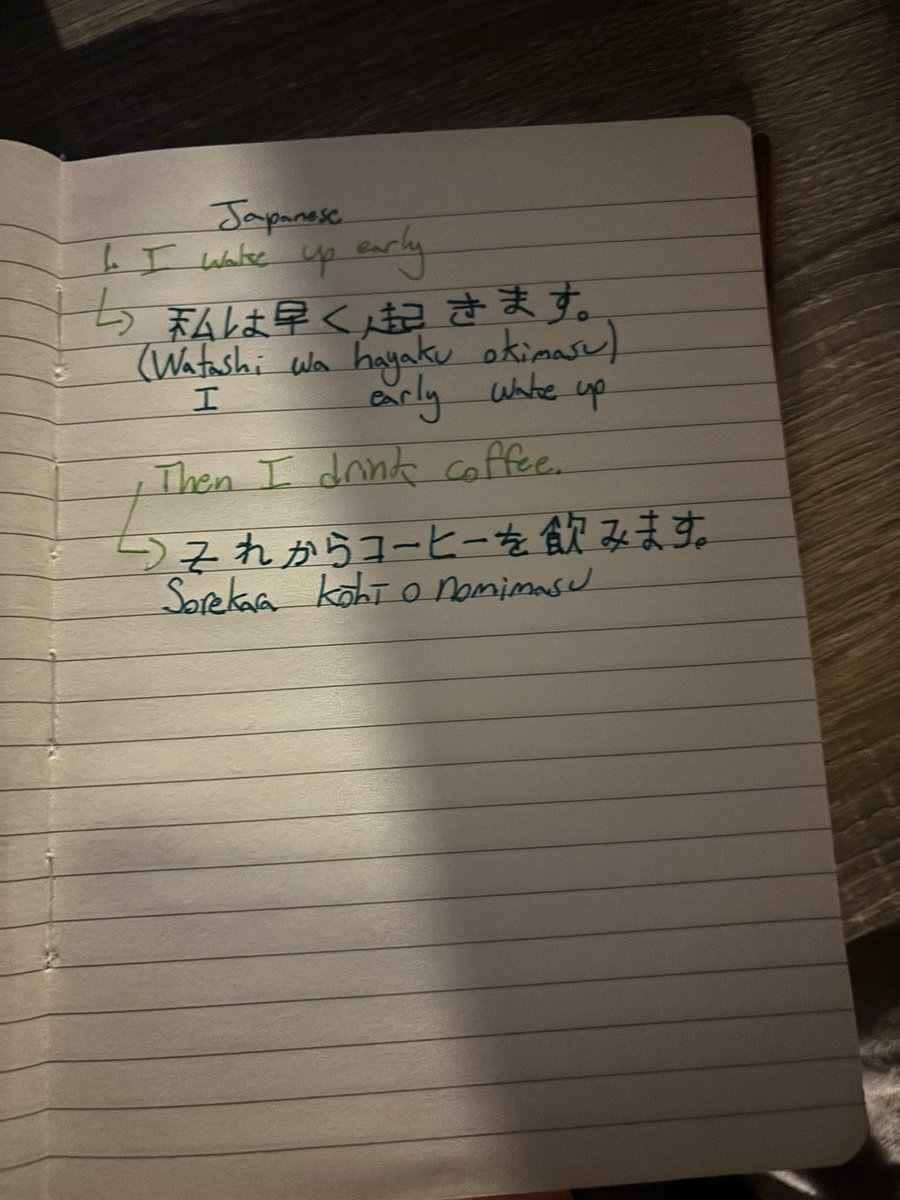 Japanese
I wake up early
私は早く起きます。
(Watashi wa hayaku okimasu)
I early wake up
Then I drink coffee.
それからコーヒーを飲みます。
Sorekara kōhī o nomimasu